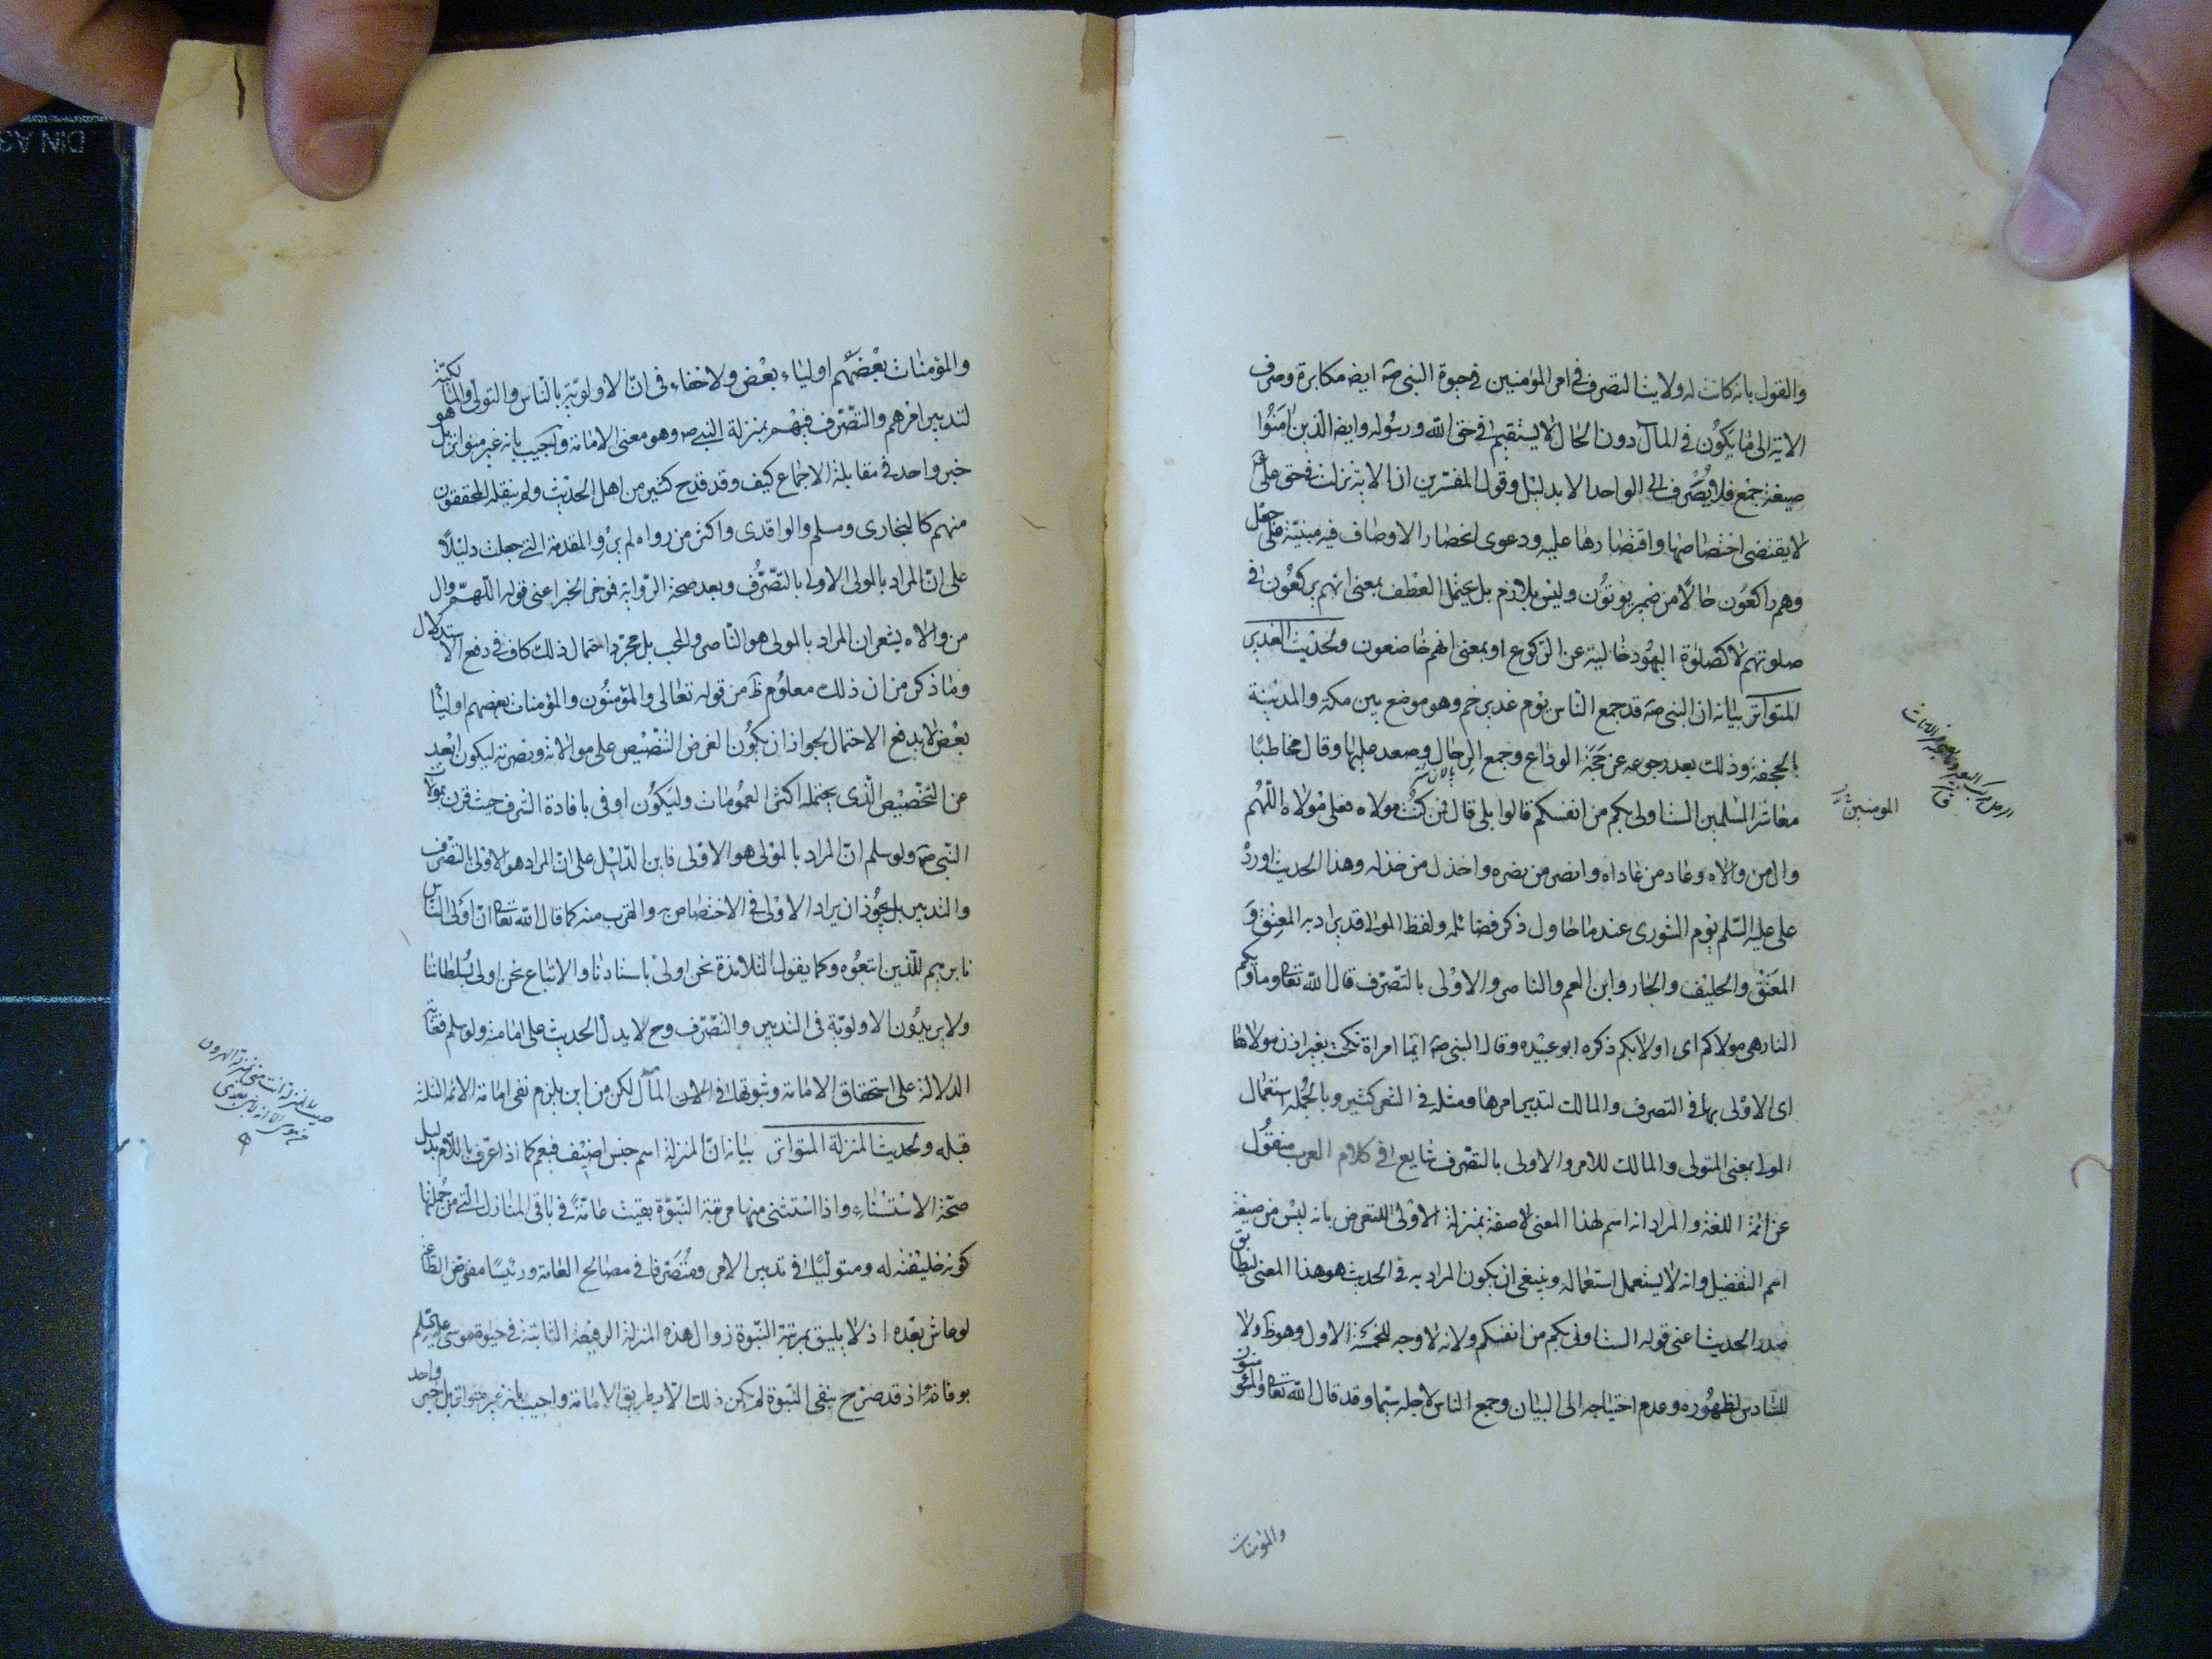 والقول بانه كانت له ولاية التصرف فى امر المؤمنين فى حيوة النبى صه ايضا مكابرة وصرف
الاية الى ما يكون فى المآل دون الحال لا يستقيم فى حق الله ورسوله وايضا الذين امنوا
صيغة جمع فلا يصرف الى الواحد الا بدليل وقول المفسرين ان الاية نزلت فى حق على
لا يقتضى اختصاصها واقتصارها عليه ودعوى انحصار الاوصاف فيه مبنية على جعل
وهم راكعون حالا من ضمير يؤتون وليس بلازم بل يحتمل العطف بمعنى انهم يركعون فى
صلوتهم لا كصلوة اليهود خالية عن الركوع او بمعنى انهم خاضعون ولحديث الغدير
المتواتر بيانه ان النبى صه قد جمع الناس يوم غدير خم وهو موضع بين مكة والمدينة
بالجحفة وذلك بعد رجوعه عن حجة الوداع وجمع الرحال وصعد عليها وقال مخاطبا
معاشر المسلمين الست اولى بكم من انفسكم قالوا بلى قال فمن كنت مولاه فعلى مولاه اللهم
المومنين
وال من والاه وعاد من عاداه وانصر من نصره واخذل من خذله وهذا الحديث اورد
على عليه السلم يوم الشورى عندما حاول ذكر فضائله ولفظ المولى قد يراد به المعتِق و
المعتَق والحليف والجار وابن العم والناصر والاولى بالتصرف قال الله تعالى ومأويكم
النار هى مولاكم اى اولى بكم ذكره ابو عبيده وقال النبى صه ايما امراة نكحت بغير اذن مولاها
اى الاولى بها فى التصرف والمالك لتدبير امرها ومثله فى الشعر كثير وبالجملة استعمال
المولى بمعنى المتولى والمالك للامر والاولى بالتصرف شايع فى كلام العرب منقول
عن ائمة اللغة والمراد انه اسم لهذا المعنى لا صفة بمنزلة الاولى ليعترض بانه ليس من صيغة
اسم التفضيل وانه لا يستعمل استعماله وينبغى ان يكون المراد به فى الحديث هو هذا المعنى ليطابق
صدر الحديث اعنى قوله الست اولى بكم من انفسكم ولانه لا وجه للخمسة الاول وهو ظ ولا
للسادس لظهوره وعدم احتياجه الى البيان وجمع الناس لاجله سيما وقد قال الله تعالى والمؤمنون
والمؤمنات
والمؤمنات بعضهم اولياء بعض ولا خفاء فى ان الاولوية بالناس والتولى والمالكية
لتدبير امرهم والتصرف فيهم بمنزلة النبى صه وهو معنى الامامة واجيب بانه غير متواتر بل هو
خبر واحد فى مقابلة الاجماع كيف وقد قدح كثير من اهل الحديث ولم ينقله المحققون
منهم كالبخارى ومسلم والواقدى واكثر من رواه لم يرو المقدمة التى جعلت دليلا
على ان المراد بالمولى الاولى بالتصرف وبعد صحة الرواية فمؤخر الخبر اعنى قوله اللهم وال
من والاه يشعر ان المراد بالمولى هو الناصر والمحب بل مجرد احتمال ذلك كاف فى دفع الاستدلال
وما ذكر من ان ذلك معلوم ظ من قوله تعالى والمؤمنون والمؤمنات بعضهم اوليا
بعض لا يدفع الاحتمال لجواز ان يكون الغرض التنصيص على موالاته ونصرته ليكون ابعد
عن التخصيص الذى يحتمله اكثر العمومات وليكون اوفى بافادة الشرف حيث قرن بموالات
النبى صه ولو سلم ان المراد بالمولى هو الاولى فاين الدليل على ان المراد هو الاولى بالتصرف
والتدبير بل يجوز ان يراد الاولى فى الاختصاص به والقرب منه كما قال الله تعالى ان اولى الناس
بابرهيم للذين اتبعوه وكما يقول التلامذة نحن اولى باستادنا والاتباع نحن اولى بسلطاننا
ولا يريدون الاولوية فى التدبير والتصرف وح لا يدل الحديث على امامته ولو سلم فغايته
الدلالة على استحقاق الامامة وثبوتها فى المآل لكن من اين يلزم نفى امامة الائمة الثلثة
قبله ولحديث المنزلة المتواتر بيانه ان المنزلة اسم جنس اضيف فيعم كما اذا عرف باللام بدليل
صحة الاستثناء واذا استثنى منها مرتبة النبوة بقيت عامة فى باقى المنازل التى من جملتها
كونه خليفة له ومتوليا فى تدبير الامر ومتصرفا فى مصالح العامة ورئيسا مفترض الطاعة
لو عاش بعده اذ لا يليق بمرتبة النبوة زوال هذه المنزلة الرفيعة الثابتة فى حيوة موسى عليه السلم
بوفاته اذ قد صرح بنفى النبوة لم يكن ذلك الا بطريق الامامة واجيب بانه غير متواتر بل خبر واحد